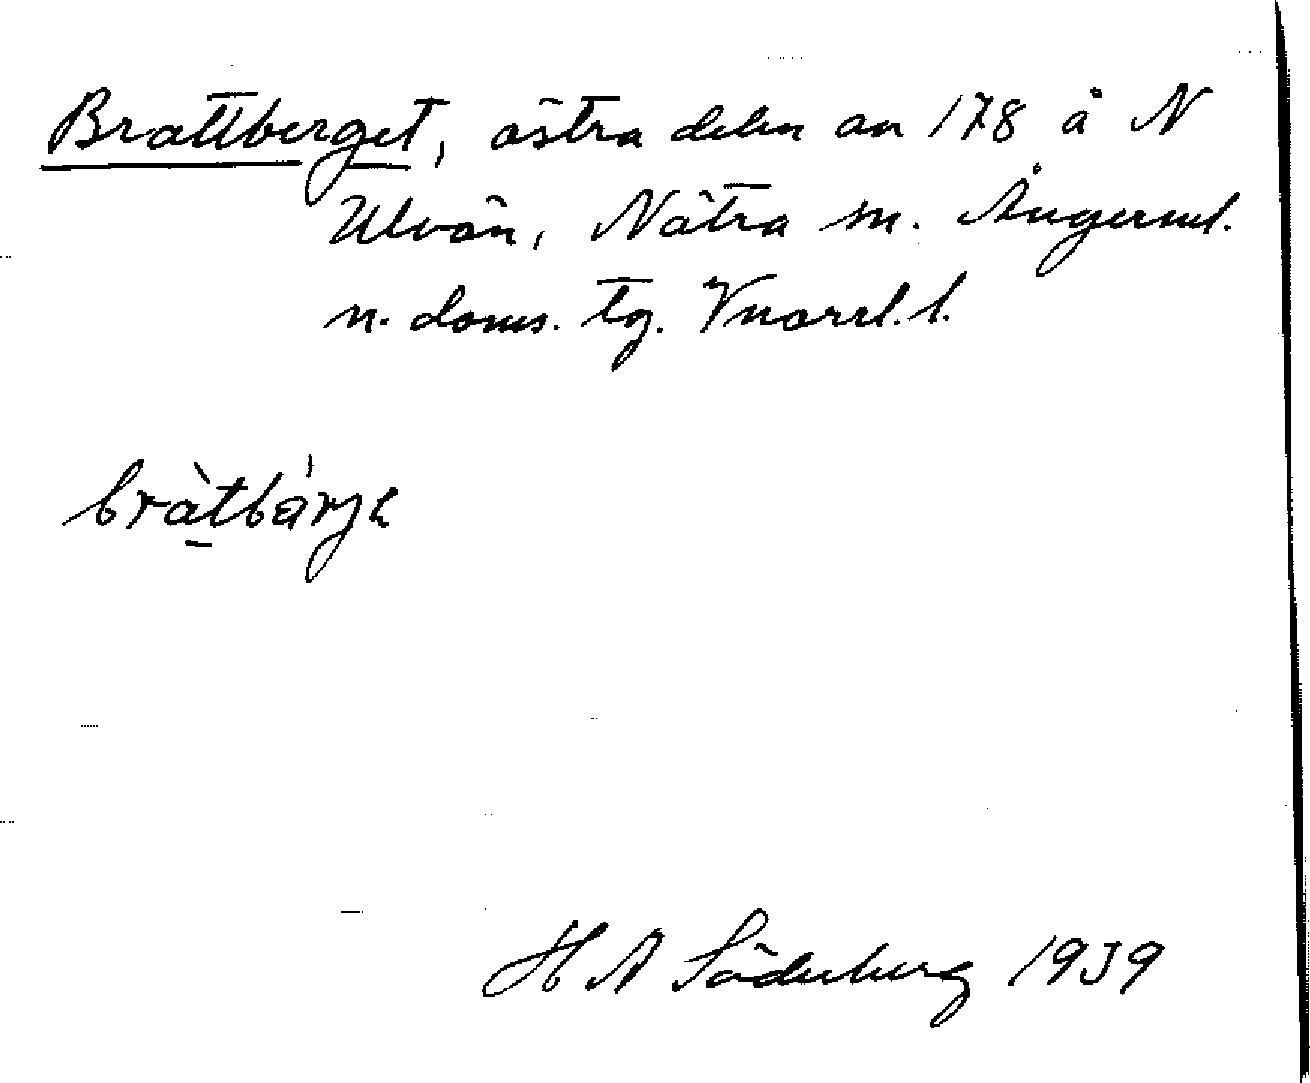 Brattberget, östra delen av 178 å N
Ulvön, Nätra sn. Ångerml.
n. doms. tg. Vnorrl. l.
bra̠̍tbärjɂ
H A Söderberg 1939